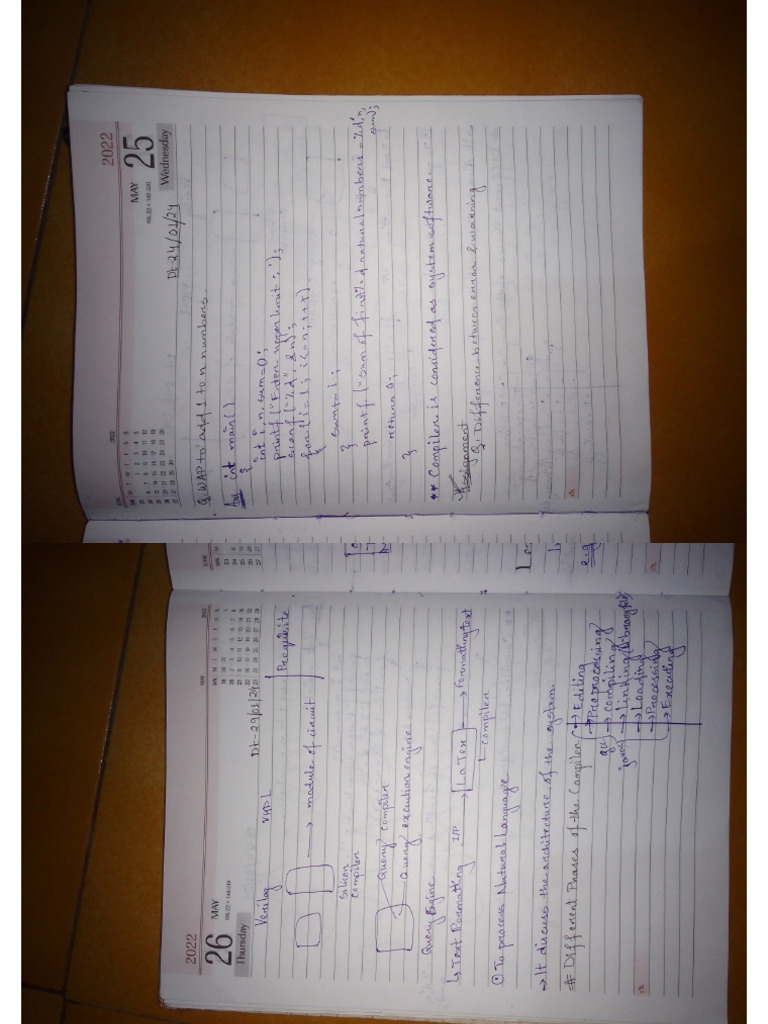 2022
MAY
25
WK 22 • 145-220
Wednesday
Dt-24/01/24
Q. WAP to add 1 to n numbers.
int main()
{
int i, n, sum=0;
printf("Enter upper limit:");
scanf("%d", &n);
for(i=1; i<=n; i++)
{
sum+=i;
}
printf("Sum of first %d natural numbers = %d", n,
sum);
return 0;
}
** Compiler is considered as system software.
Assignment
Q. Difference between error & warning
2022
26
MAY
WK 22 • 146-219
Thursday
Dt-29/01/24
Verilog VHDL
Prequisite
→ module of circuit
Silicon
Compiler
Query compiler
Query execution engine
Query Engine
↳ Text Formatting I/P → [LaTex] → Formatting text
compiler
① To process Natural Language
→ It discuss the architecture of the system.
# Different Phases of the Compiler
→ Editing
→ Preprocessing
→ compiling
→ Linking (Library file)
→ Loading
→ Processing
→ Executing